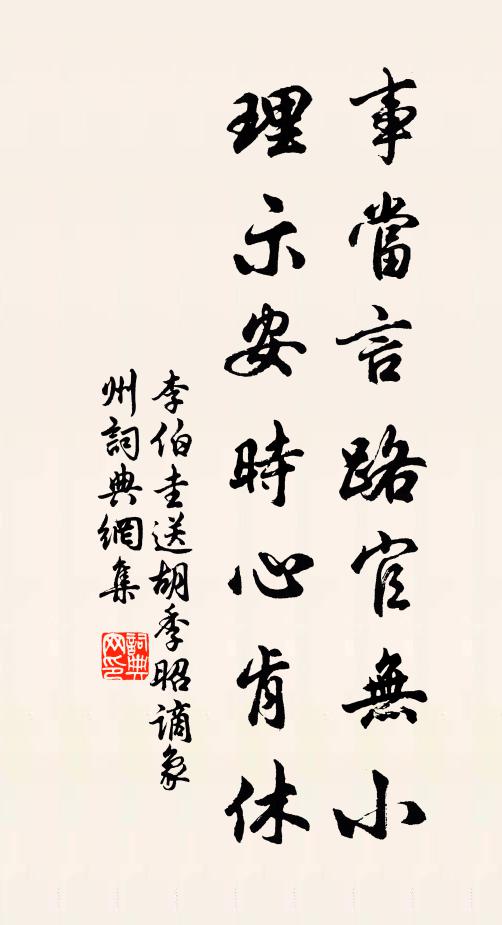 事當言路官無小
理示安時心肯休
李伯圭送胡季昭謫象
州詞典網集
詞典网印